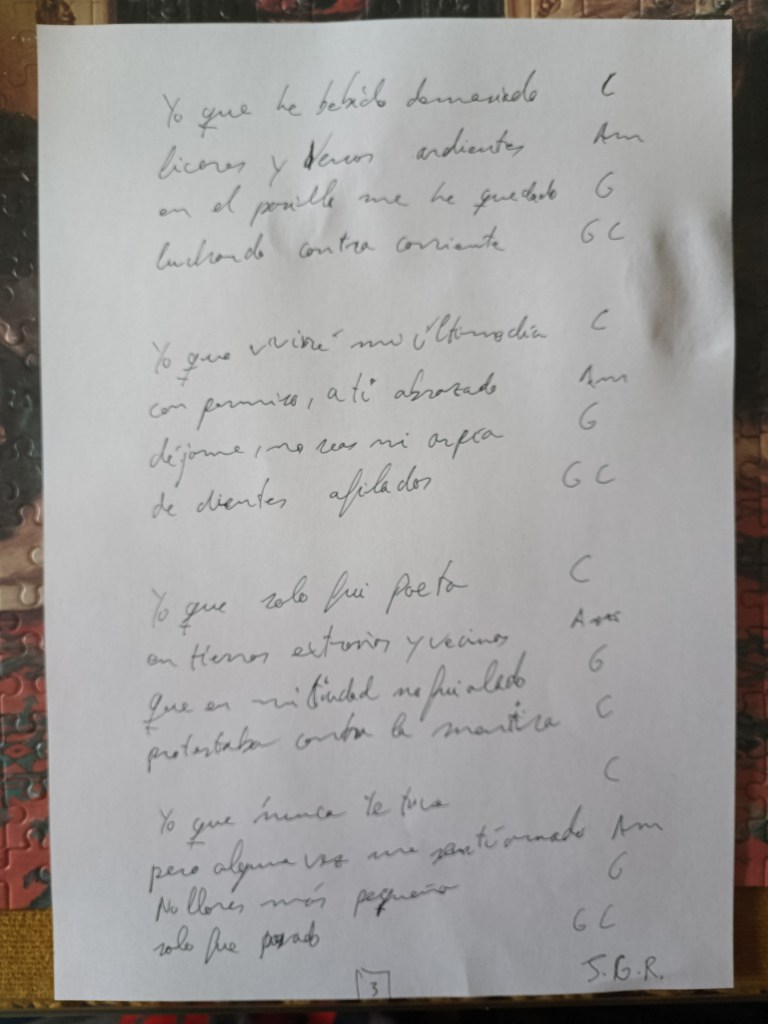 Yo que he bebido demasiado C
licores y versos ardientes Am
en el pasillo me he quedado G
luchando contra corriente G C
Yo que viviré mi último día C
con permiso, a ti abrazado Am
déjame, no seas mi arpía G
de dientes afilados G C
Yo que solo fui poeta C
en tierras extrañas y vecinas Am
que en mi ciudad no fui alado G
protestaba contra la mentira C
Yo que nunca te tuve C
pero alguna vez me sentí amado Am
No llores más pequeña G
solo fue pasado G C
J.G.R.
3